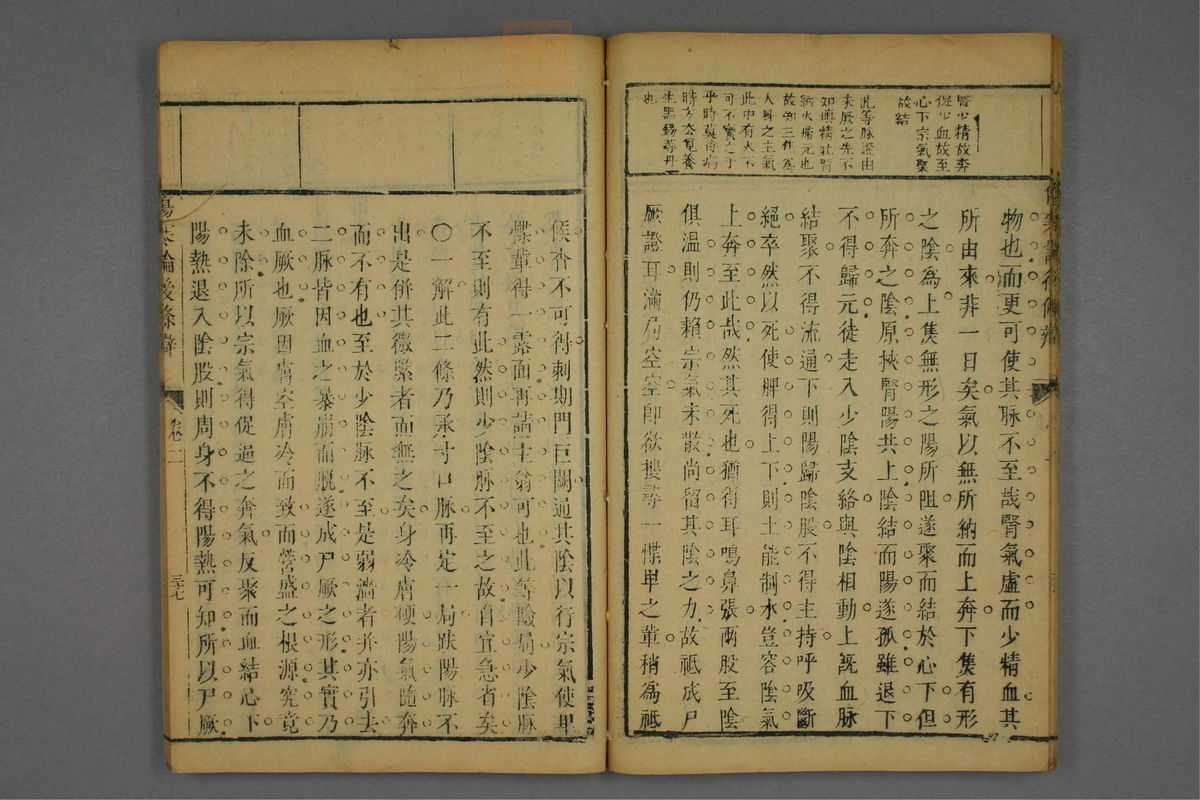 腎少精故奔
促少血故至
心下宗氣聚
故結
此等脉證由
未厥之先不
知填精壯腎
納火歸元也
故知三焦為
人身之主氣
此中有火不
可不實之于
乎時莫待病
時方去覓養
生黑錫等丹
也
物也而更可使其脉不至哉腎氣虛而少精血其
所由來非一日矣氣以無所納而上奔下焦有形
之陰為上焦無形之陽所阻遂聚而結於心下但
所奔之陰原挾腎陽共上陰結而陽遂孤雖退下
不得歸元徒走入少陰支絡與陰相動上既血脉
結聚不得流通下則陽歸陰股不得主持呼吸斷
絕卒然以死使脾得上下則土能制水豈容陰氣
上奔至此哉然其死也猶得耳鳴鼻張兩股至陰
俱溫則仍賴宗氣未散尚留其陰之力故祗成尸
厥證耳滿局空空卽欲搜尋一惵卑之輩稍為祗
候杳不可得刺期門巨闕逼其陰以行宗氣使卑
惵輩得一露面再請主翁可也此等險局少陰脉
不至則有此然則少陰脉不至之故自宜急省矣
〇一解此二條乃承寸口脉再定一局趺陽脉不
出是併其微緊者而無之矣身冷膚硬陽氣隨奔
而不有也至於少陰脉不至是弱濇者并亦引去
二脉皆因血之暴崩而脫遂成尸厥之形其實乃
血厥也厥因膚空膚冷而致而營盛之根源究竟
未除所以宗氣得促逼之奔氣反聚而血結心下
陽熱退入陰股則周身不得陽熱可知所以尸厥
傷寒論後條辯
卷二
三十七